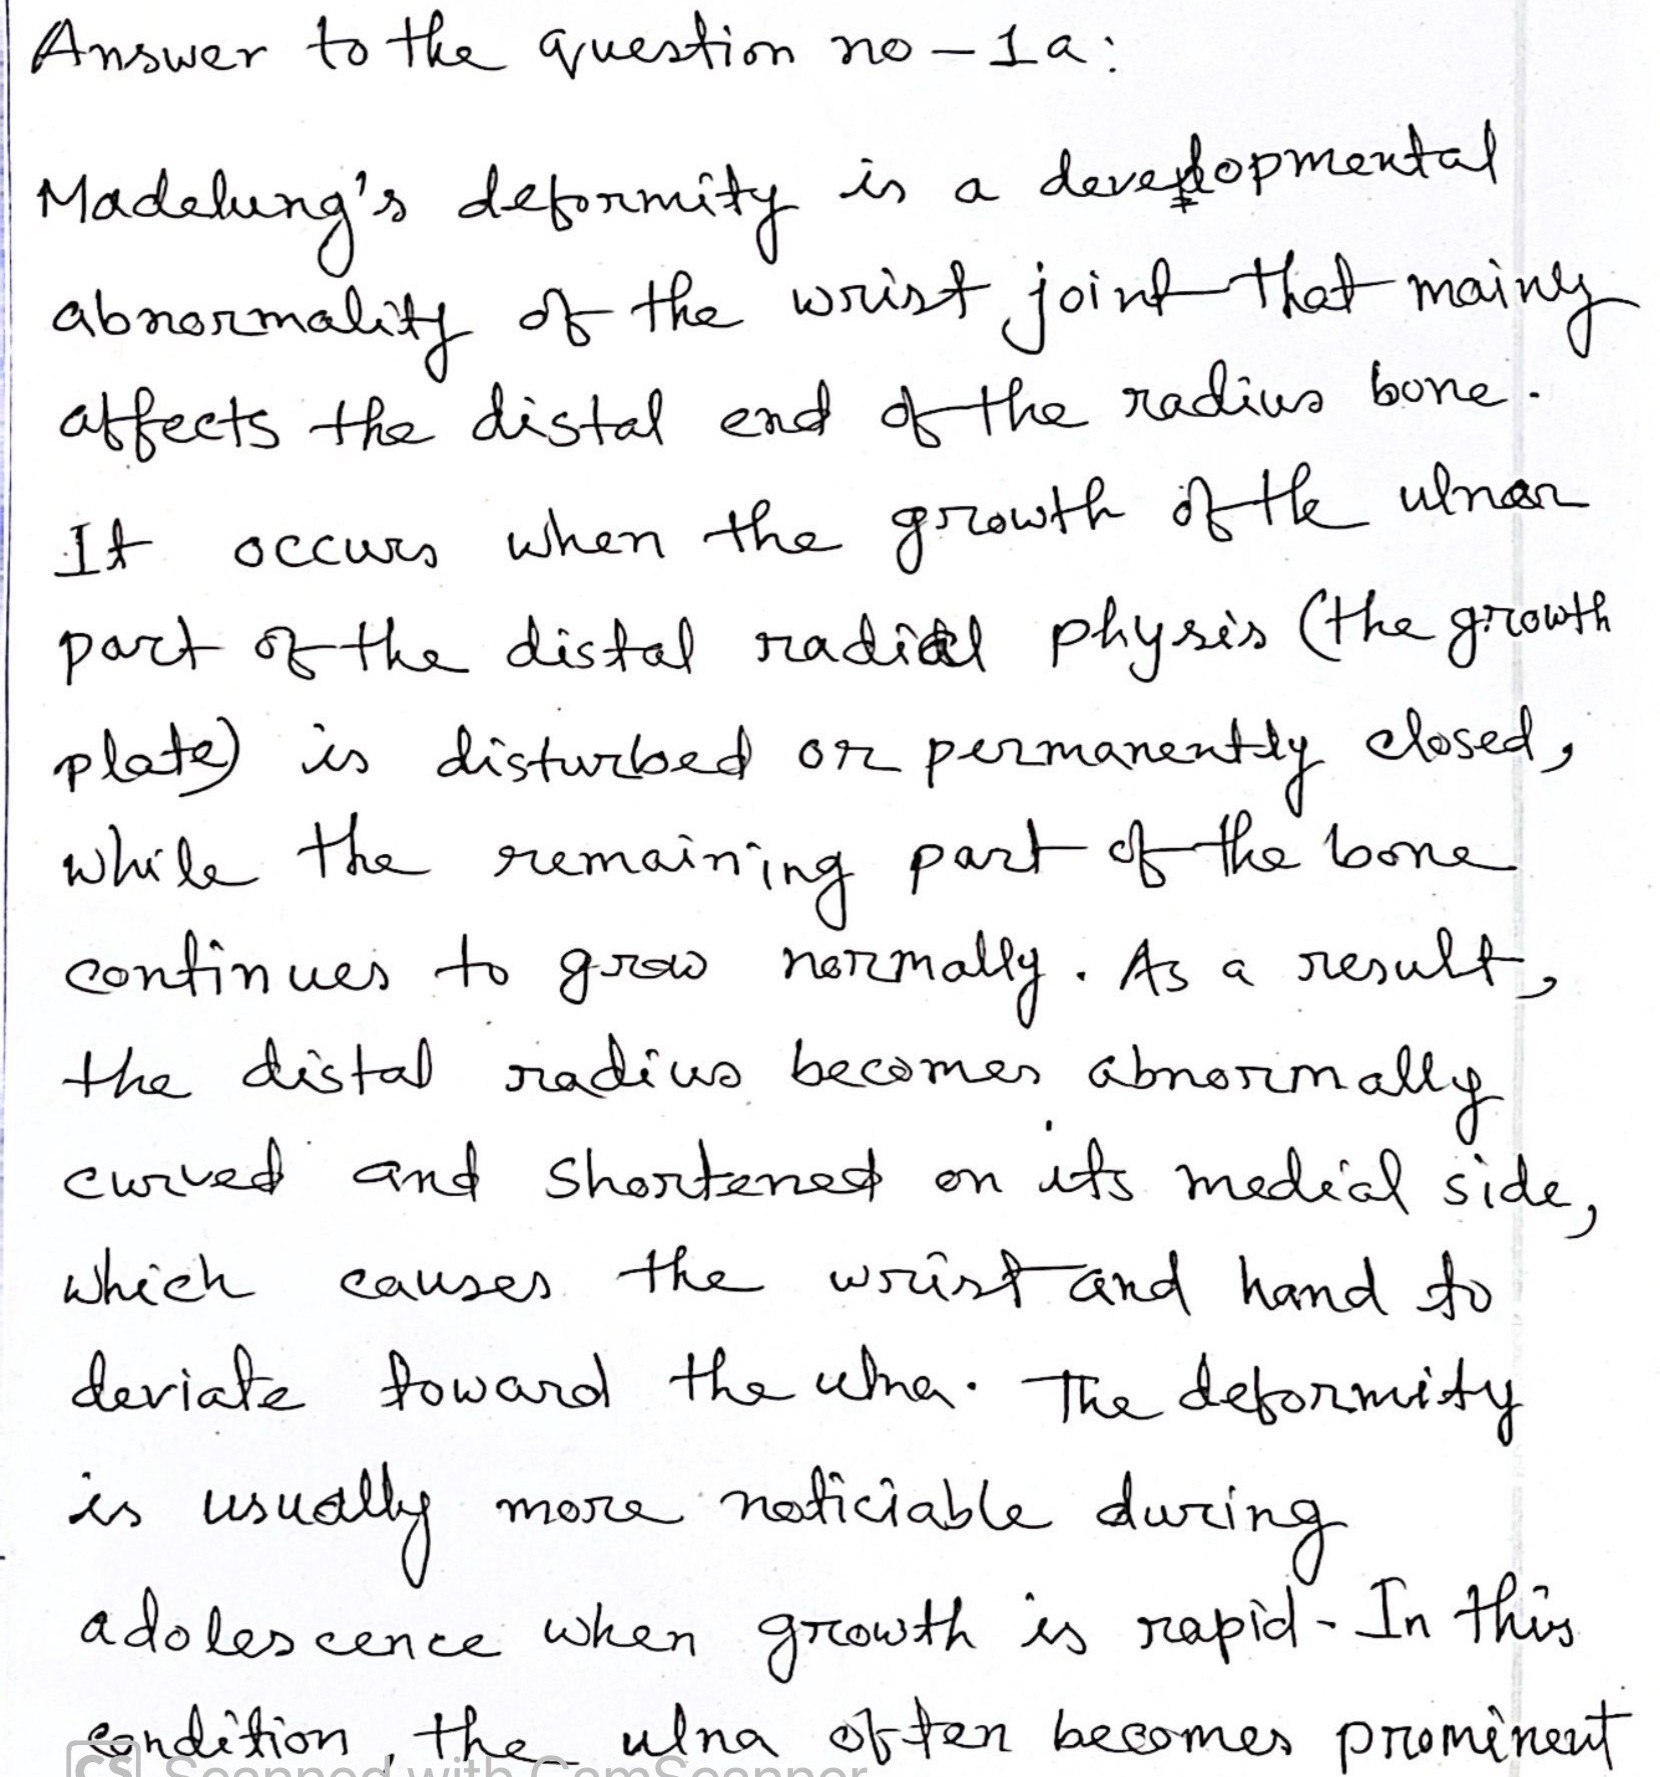 Answer to the question no - 1a:
Madelung's deformity is a developmental
abnormality of the wrist joint that mainly
affects the distal end of the radius bone.
It occurs when the growth of the ulnar
part of the distal radial physis (the growth
plate) is disturbed or permanently closed,
while the remaining part of the bone
continues to grow normally. As a result,
the distal radius becomes abnormally
curved and shortened on its medial side,
which causes the wrist and hand to
deviate toward the ulna. The deformity
is usually more noticiable during
adolescence when growth is rapid. In this
condition, the ulna often becomes prominent
CS Scanned with CamScanner